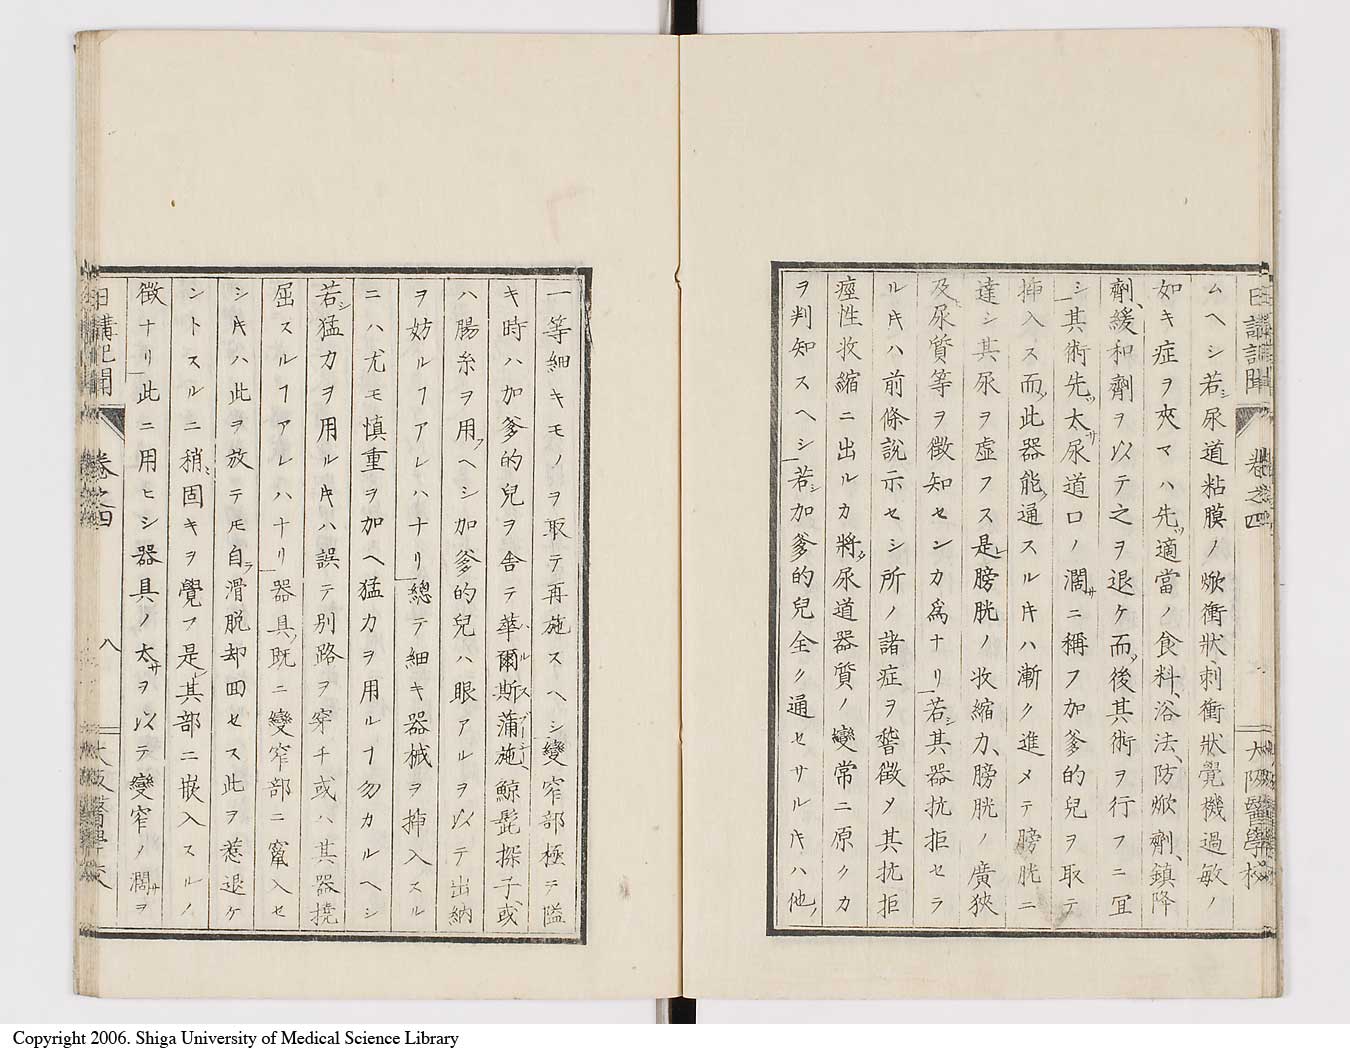 日講記聞 卷之四 大阪醫學校
ムヘシ若シ尿道粘膜ノ焮衝狀刺衝狀覺機過敏ノ
如キ症ヲ夾マハ先ツ適當ノ食料、浴法、防焮劑、鎮降
劑、緩和劑ヲ以テ之ヲ退ケ而ツ後其術ヲ行フニ冝
シ其術先ツ太サ尿道口ノ濶サニ稱フ加爹的兒ヲ取テ
揷入ス而ツ此器能ク通スルキハ漸ク進メテ膀胱ニ
達シ其尿ヲ虛フス是レ膀胱ノ收縮力、膀胱ノ廣狹
及ヒ尿質等ヲ徵知センカ爲ナリ若シ其器抗拒セラ
ルキハ前條說示セシ所ノ諸症ヲ稽徵メ其抗拒
痙性收縮ニ出ルカ將タ尿道器質ノ變常ニ原クカ
ヲ判知スヘシ若シ加爹的兒全ク通セサルキハ他ノ
一等細キモノヲ取テ再施スヘシ變窄部極テ隘
キ時ハ加爹的兒ヲ舍テ華爾斯蒲施、鯨髭探子或
ハ腸糸ヲ用フヘシ加爹的兒ハ眼アルヲ以テ出納
ヲ妨ルヿアレハナリ總テ細キ器械ヲ揷入スル
ニハ尤モ慎重ヲ加ヘ猛力ヲ用ルヿ勿カルヘシ
若シ猛力ヲ用ルキハ誤テ別路ヲ穿チ或ハ其器撓
屈スルヿアレハナリ器具既ニ變窄部ニ竄入セ
シキハ此ヲ放テモ自ラ滑脫却回セス此ヲ惹退ケ
ントスルニ稍シ固キヲ覺フ是レ其部ニ嵌入スルノ
徵ナリ此ニ用ヒシ器具ノ太サヲ以テ變窄ノ濶サヲ
日講記聞 卷之四 八 大阪醫學校
Copyright 2006. Shiga University of Medical Science Library